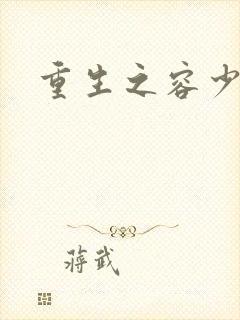 重生之容少
蒋武